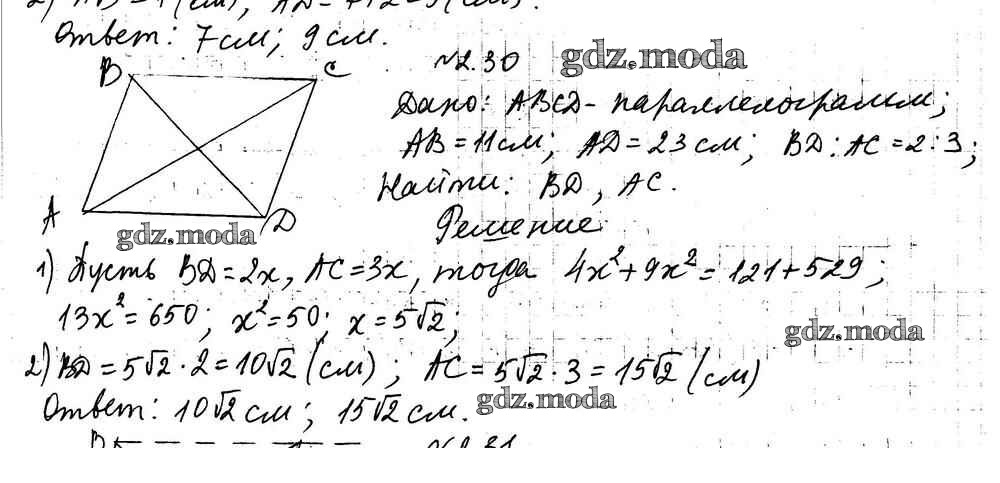 Ответ: 7см; 9 см.
B
C
№2.30
gdz.moda
Дано: ABCD- параллелограмм;
AB = 11 см; AD = 23 см; BD : AC = 2 : 3;
Найти: BD, AC.
A
D
gdz.moda
Решение
1) Пусть BD = 2x, AC = 3x, тогда 4x² + 9x² = 121 + 529;
13x² = 650; x² = 50; x = 5√2;
gdz.moda
2) BD = 5√2 · 2 = 10√2 (см); AC = 5√2 · 3 = 15√2 (см)
Ответ: 10√2 см; 15√2 см.
gdz.moda
B